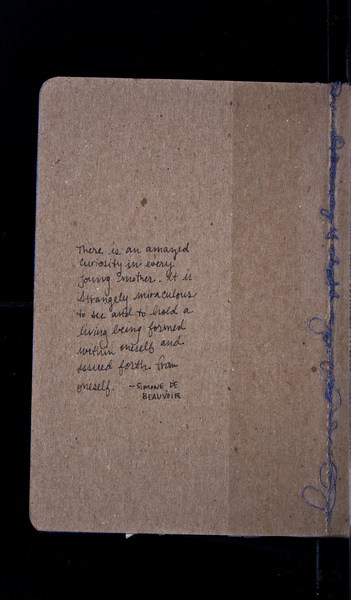 There is an amazed
curiosity in every
young mother. It is
strangely miraculous
to see and to hold a
living being formed
within oneself and
issued forth from
oneself. — SIMONE DE
BEAUVOIR